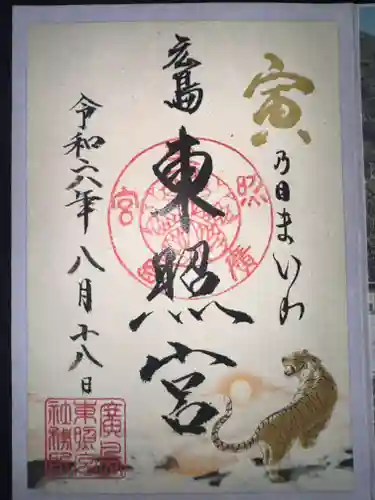 寅乃日まいり
広島
東照宮
令和六年八月十八日
廣島
東照宮
社務所